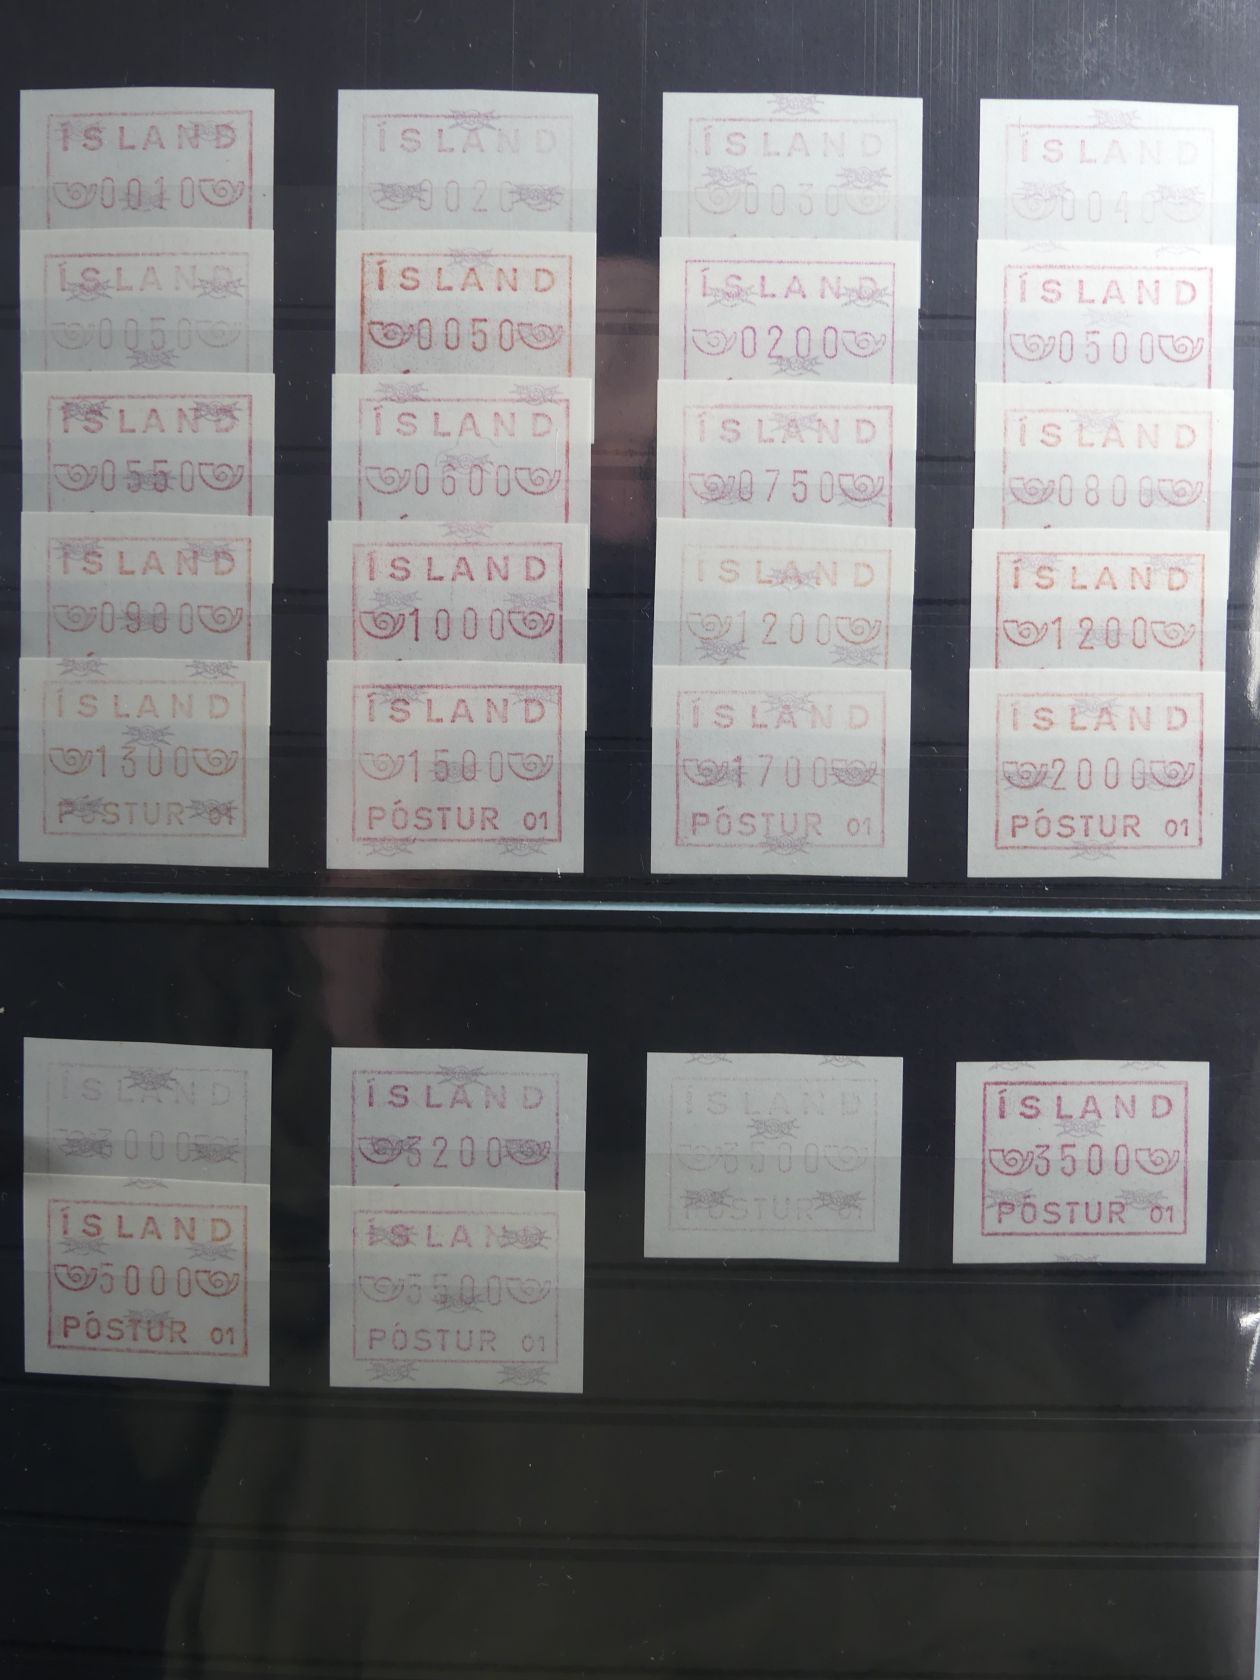 ÍSLAND
0010
ÍSLAND
0020
ÍSLAND
0030
ÍSLAND
0040
ÍSLAND
0050
ÍSLAND
0050
ÍSLAND
0200
ÍSLAND
0500
ÍSLAND
0550
ÍSLAND
0600
ÍSLAND
0750
ÍSLAND
0800
ÍSLAND
0900
ÍSLAND
1000
ÍSLAND
1200
ÍSLAND
1200
ÍSLAND
1300
PÓSTUR 01
ÍSLAND
1500
PÓSTUR 01
ÍSLAND
1700
PÓSTUR 01
ÍSLAND
2000
PÓSTUR 01
ÍSLAND
3000
ÍSLAND
3200
ÍSLAND
3500
PÓSTUR 01
ÍSLAND
3500
PÓSTUR 01
ÍSLAND
5000
PÓSTUR 01
ÍSLAND
5500
PÓSTUR 01